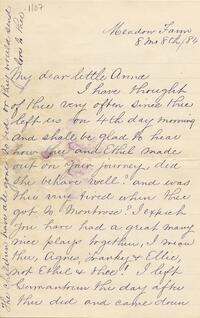 1107
Meadow Farm
8 Mo 8th/86
My dear little Anna
I have thought
of thee very often since thee
left us on 4th day morning
and shall be glad to hear
how thee and Ethel made
out on your journey, did
she behave well? and was
thee very tired when thee
got to Montrose? I expect
you have had a great many
nice plays together, I mean
thee, Agnes, Frankey & Ellie,
not Ethel & thee! I left
Germantown the day after
thee did and came down
The children have all gone to bed or they would send
love to thee.